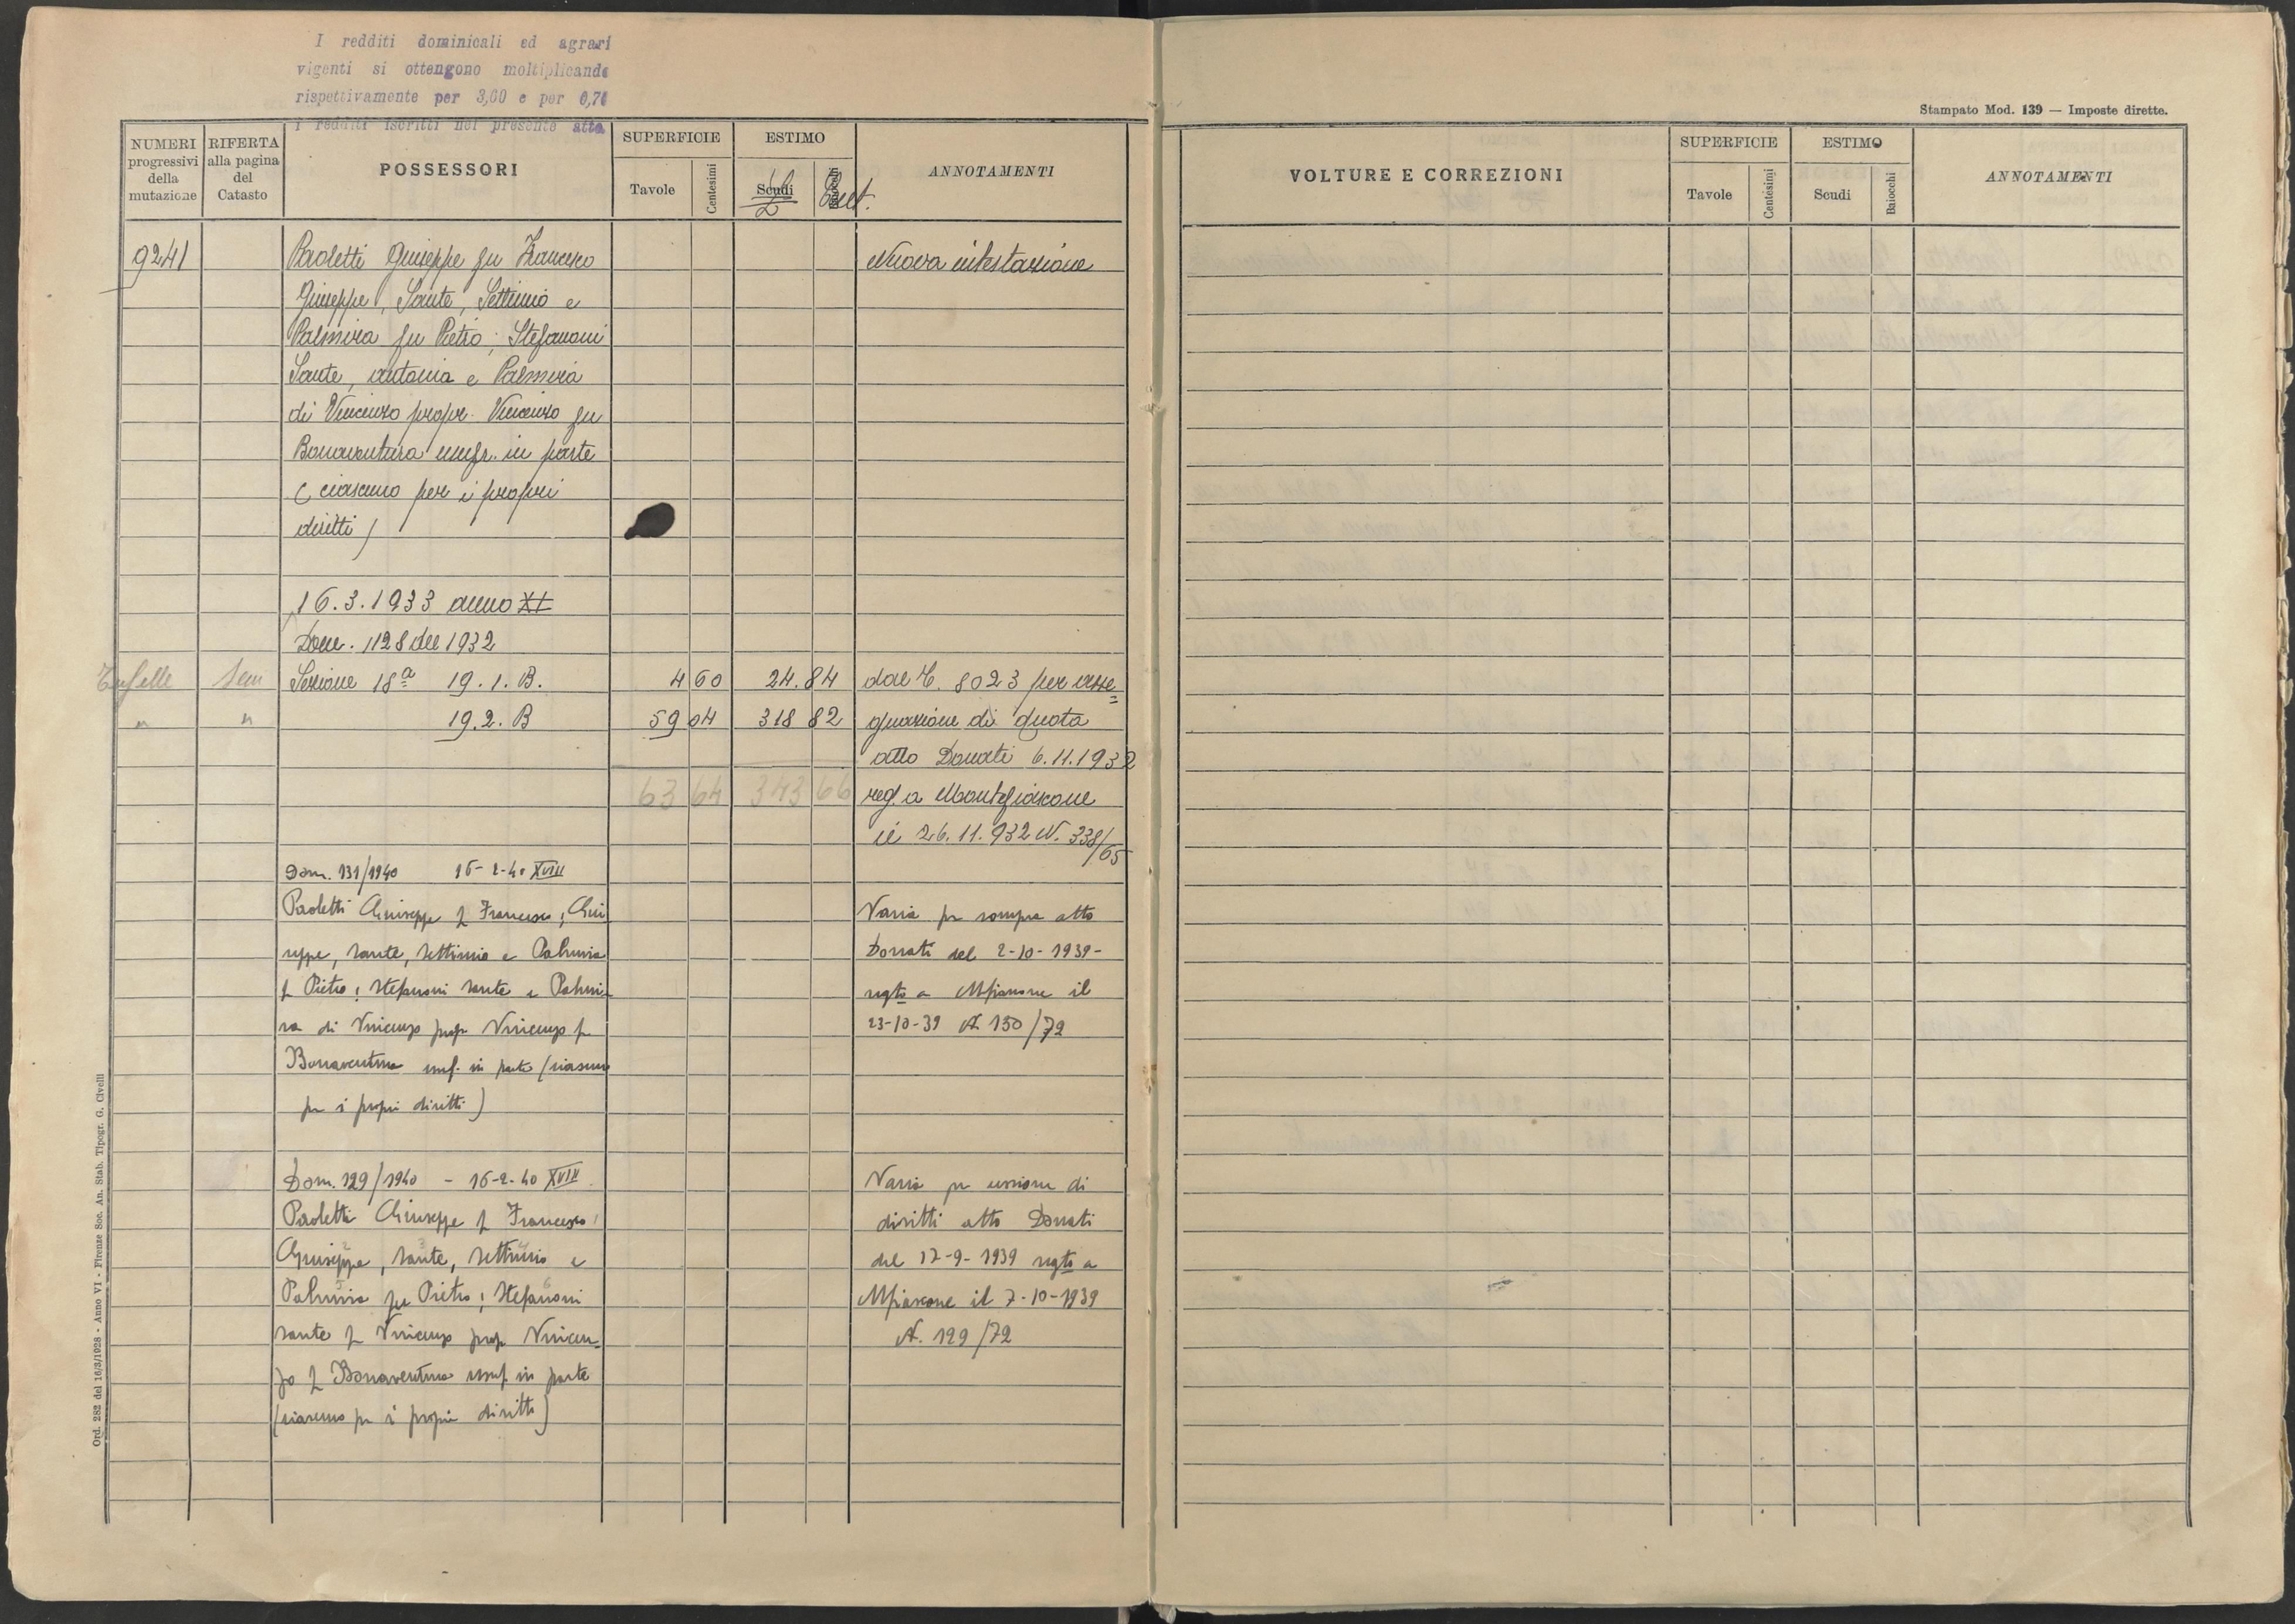 I redditi dominicali ed agrari
vigenti si ottengono moltiplicando
rispettivamente per 3,60 e per 0,7
i redditi iscritti nel presente atto
Stampato Mod. 139 — Imposte dirette.
NUMERI progressivi della mutazione
RIFERTA alla pagina del Catasto
POSSESSORI
SUPERFICIE
Tavole
Centesimi
ESTIMO
Scudi
Baiocchi
£
Cent.
ANNOTAMENTI
VOLTURE E CORREZIONI
SUPERFICIE
Tavole
Centesimi
ESTIMO
Scudi
Baiocchi
ANNOTAMENTI
9241 Paoletti Giuseppe fu Francesco Nuova intestazione
Giuseppe, Sante, Settimio e
Palmira fu Pietro; Stefanoni
Sante, Antonia e Palmira
di Vincenzo propr. Vincenzo fu
Bonaventura usufr. in parte
(ciascuno per i propri
diritti)
16.3.1933 anno XI
Dom. 1128 del 1932
Sezione 18ª 19.1.B. 4 60 24.84 dal C. 8023 per asse=
" " 19.2.B 59 04 318 82 gnazione di quota
atto Donati 6.11.1932
63 64 343 66 reg. a Montefiascone
il 26.11.932 N. 338/65
Dom. 131/1940 16-2-40 XVIII
Paoletti Giuseppe f Francesco; Giu Varia per compra atto
seppe, Sante, Settimio e Palmira Donati del 2-10-1939-
f Pietro; Stefanoni Sante e Palmi- regto a Mfiascone il
ra di Vincenzo prop Vincenzo f 23-10-39 N. 150/72
Bonaventura usuf. in parte (ciascuno
per i propri diritti)
Dom. 129/1940 - 16-2-40 XVIII. Varia per cessione di
Paoletti Giuseppe f Francesco; diritti atto Donati
Giuseppe, Sante, Settimio e del 17-9-1939 regto a
Palmira fu Pietro; Stefanoni Mfiascone il 7-10-1939
Sante f Vincenzo prop Vincen- N. 129/72
zo f Bonaventura usuf. in parte
(ciascuno per i propri diritti)
Ord. 282 del 16/3/1928 - Anno VI - Firenze Soc. An. Stab. Tipogr. G. Civelli